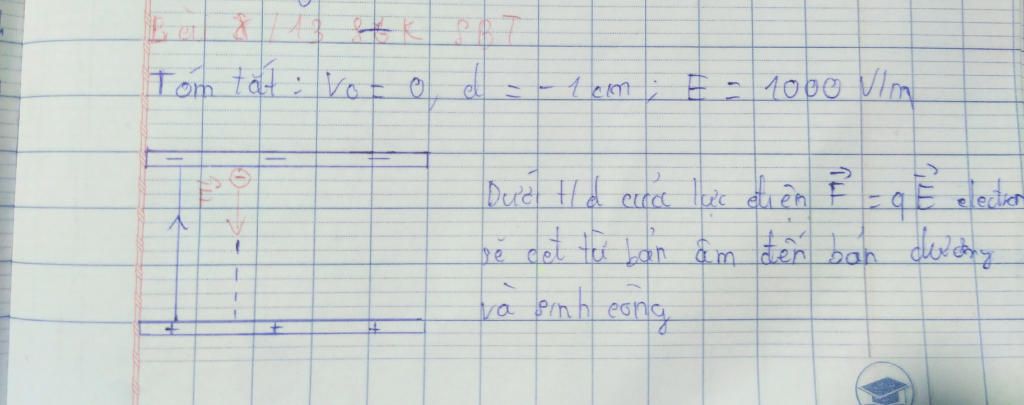 Bài 8/13 SGK SBT
Tóm tắt: V0 = 0, d = -1cm; E = 1000 V/m
- - -
F⃗ -
Dưới t/d của lực điện F⃗ = qE⃗ electron
sẽ đet từ bản âm đến bản dương
và sinh công
+ + +